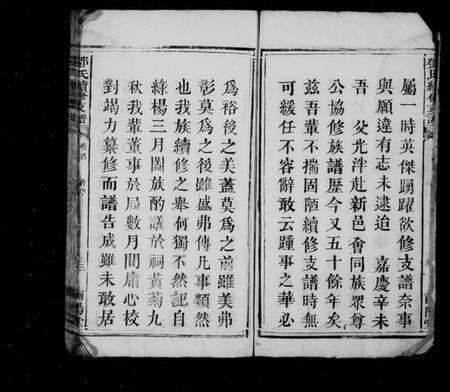 屬一時英傑踴躍欲修支譜奈事
與願違有志未逮迨　嘉慶辛未
吾　父光泮赴新邑會同族眾尊
公協修族譜歷今又五十餘年矣
茲吾輩不揣固陋續修支譜時無
可緩任不容辭敢云踵事之華必
為裕後之美蓋莫為之前雖美弗
彰莫為之後雖盛弗傳凡事類然
也我族續修之舉何獨不然記自
綠楊三月闔族酌議於祠黃菊九
秋我輩董事於局數月間庸心校
對竭力纂修而譜告成雖未敢居
鄧氏續修支譜